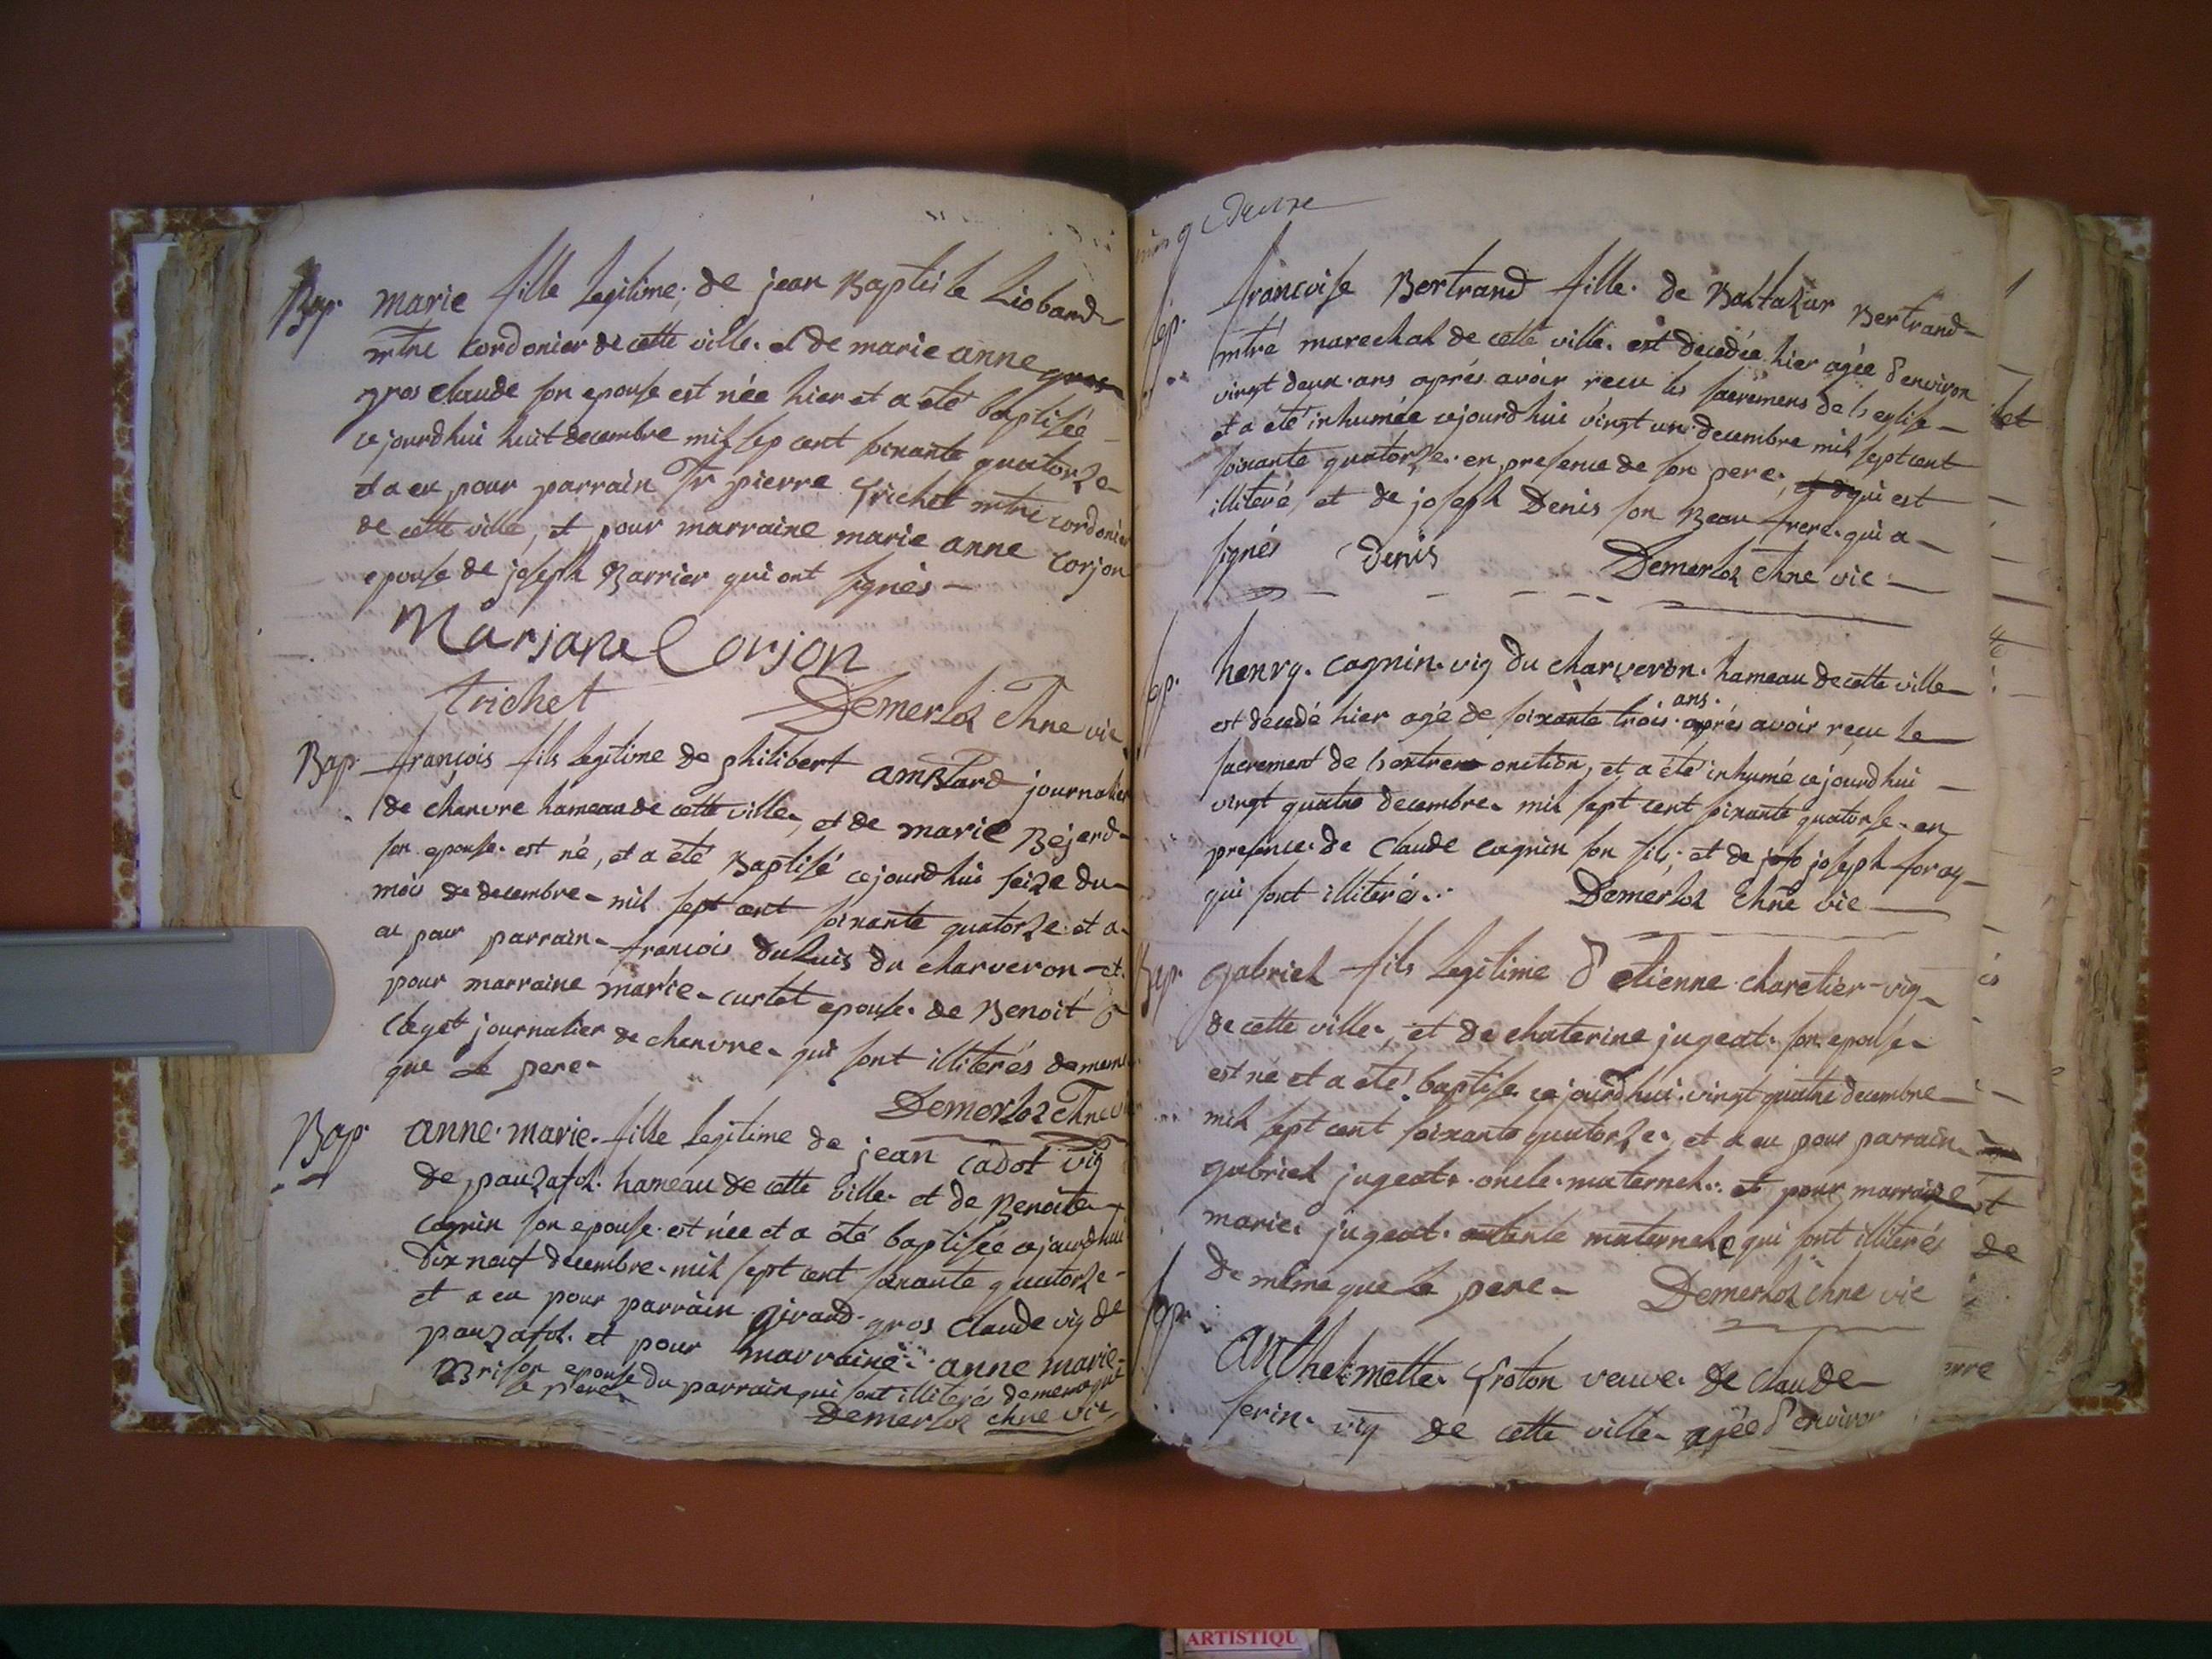 Bap. marie fille legitime, de jean Baptiste Lioband
mtre cordonier de cette ville. et de marie anne gros
gros claude son epouse est née hier et a été baptisée
ce jourd'hui huit decembre mil sep cent soixante quatorze
et a eu pour parrain Sr pierre Trichet mtre cordonier
de cette ville, et pour marraine marie anne Corjon
epouse de joseph Barrier qui ont signés
Marjane Corjon
trichet Demerloz Chne vic
Bap. francois fils legitime de philibert amblard journalier
de chanvre hameau de cette ville, et de marie Bejard
son epouse. est né, et a été Baptisé cejourd'hui seize du
mois de decembre mil sept cent soixante quatorze. et a
eu pour parrain francois dupuis du charveron et
pour marraine marie curlet epouse. de Benoit
claget journalier de chanvre qui sont illiterés de meme
que le pere
Demerloz Chne vic
Bap. anne. marie. fille legitime de jean cadot vig
de pauzafol. hameau de cette ville. et de Benoite
cognin son epouse. est née et a été baptisée cejourdhui
dix neuf decembre. mil sept cent soixante quatorze
et a eu pour parrain giraud gros claude vig de
pauzafol. et pour marraine anne marie
Brison epouse du parrain qui sont illiterés de meme que
le pere
Demerloz chne vic
Deuvre
sep. francoise Bertrand fille. de Baltazar Bertrand
mtré marechal de cette ville. est decedée hier agée d'environ
vingt deux ans aprés avoir recu les sacremens de l'eglise
et a été inhumée cejourd'hui vingt un decembre mil sept cent
soixante quatorze. en presence de son pere, et d qui est
illiteré et de joseph Denis son Beau frere. qui a
signés Denis Demerloz Chne vic
sep. henry. cognin. vig du charveron. hameau de cette ville
ans.
est decedé hier agé de soixante trois. aprés avoir reçu le
sacrement de l'extreme onction, et a été inhumé cejourdhui
vingt quatre decembre mil sept cent soixante quatorse. en
presence. de Claude cognin son fils, et de jose joseph foray
qui sont illiterés. Demerloz Chne vic
Bap. gabriel fils legitime d'etienne charetier vig
de cette ville, et de chaterine jugeat. son epouse
est né et a été baptise cejourdhui vingt quatre decembre
mil sept cent soixante quatorze. et a eu pour parrain
gabriel jugeat. oncle. maternel. et pour marraine
marie. jugeat. tante maternele qui sont illiterés
de même que le pere Demerloz chne vic
sep. Anthelmette. froton veuve. de claude
serin. vig de cette ville. agée d'environ